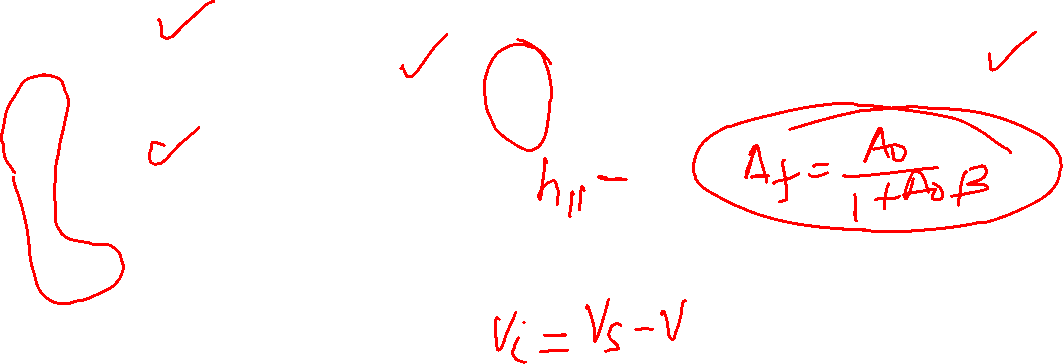 h₁₁ -
A_f = A_0 / (1 + A_0 β)
V_i = V_s - V